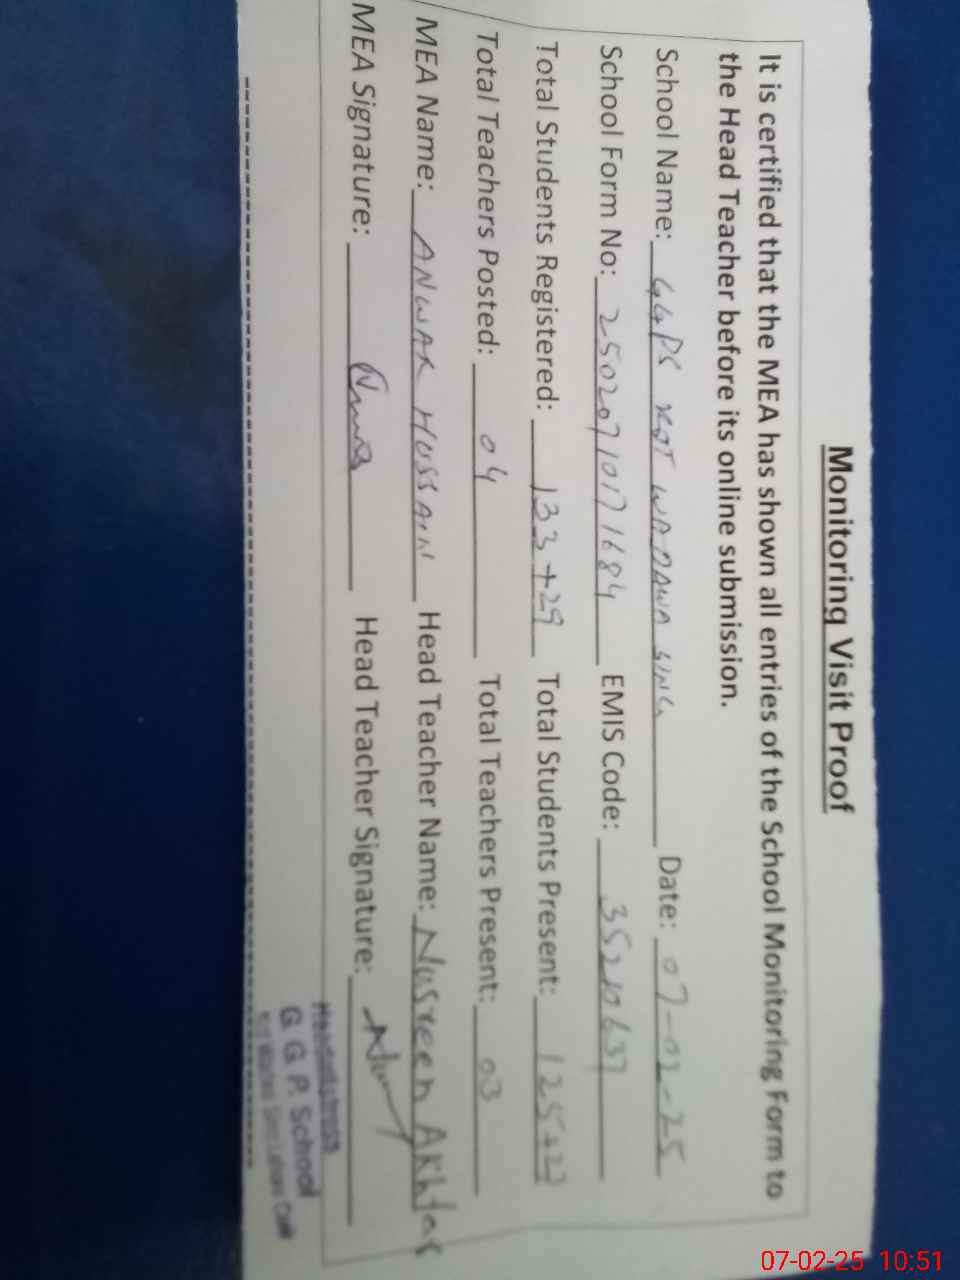 Monitoring Visit Proof
It is certified that the MEA has shown all entries of the School Monitoring Form to
the Head Teacher before its online submission.
School Name: GGPS KOT WADAWA SING Date: 07-02-25
School Form No: 25020710171684 EMIS Code: 35210637
Total Students Registered: 133+29 Total Students Present: 125+27
Total Teachers Posted: 04 Total Teachers Present: 03
MEA Name: ANWAR HUSSAIN Head Teacher Name: Nusreen Akhtar
MEA Signature: Head Teacher Signature:
Headmistress
G. G. P. School
07-02-25 10:51